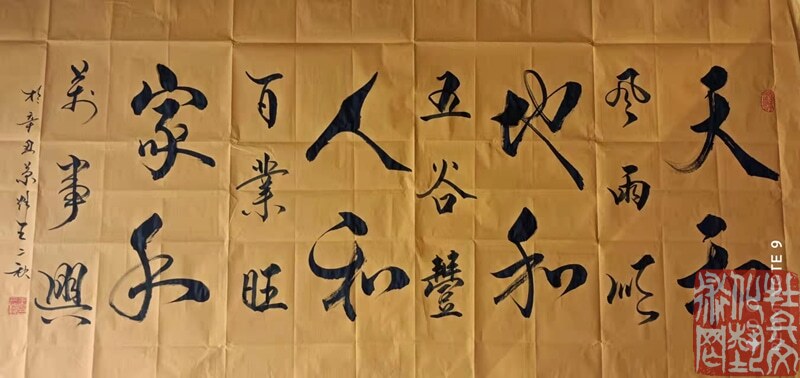 天和
風雨順
地和
五谷豐
人和
百業旺
家和
萬事興
於辛丑
TE 9